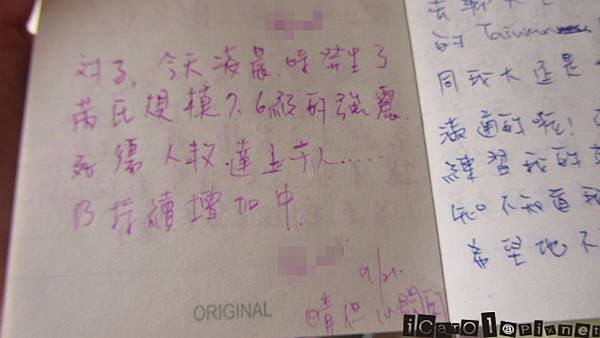 对了, 今天凌晨.時發生了
芮氏規模7.6級的強震.
死傷人数.達上千人.....
仍持續增加中.
9/21.
晴但心
ORIGINAL
的Taiwan
還是
溝通的啦!
練習我的
知不知道我
希望他不
iCarol@pixnet